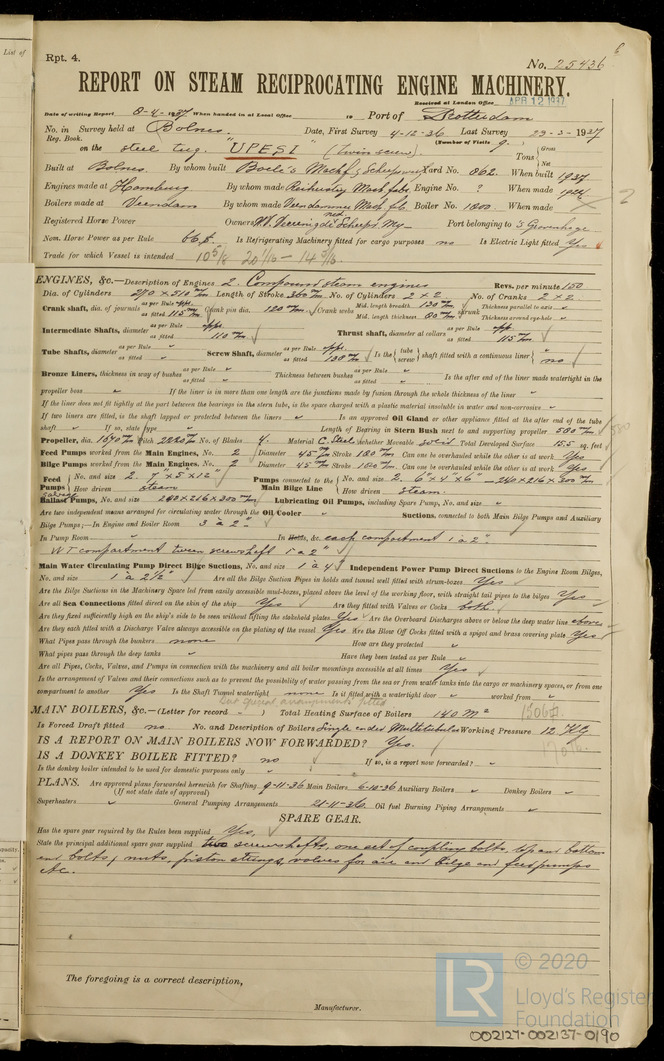 List of
Rpt. 4.
6
No. 25436
REPORT ON STEAM RECIPROCATING ENGINE MACHINERY.
Received at London Office APR 12 1937
Date of writing Report 8-4-1937 When handed in at Local Office 19 Port of Rotterdam
No. in Survey held at Bolnes. Date, First Survey 4-12-36 Last Survey 29-3-1937
Reg. Book. (Number of Visits 9.
on the steel tug. "UPESI" (Twin screw) Tons Gross Net
Built at Bolnes. By whom built Boele's Yard No. 862. When built 1937
Engines made at Hamburg By whom made Engine No. ? When made 1924
Boilers made at Veendam By whom made Boiler No. 1800. When made
Registered Horse Power Owners Port belonging to 's Gravenhage
Nom. Horse Power as per Rule Is Refrigerating Machinery fitted for cargo purposes no Is Electric Light fitted Yes
Trade for which Vessel is intended
ENGINES, &c.—Description of Engines 2 Compound steam engines Revs. per minute 150
Dia. of Cylinders Length of Stroke 360 No. of Cylinders 2 × 2 No. of Cranks 2 × 2
Crank shaft, dia. of journals as per Rule appr. as fitted 115 Crank pin dia. 120 Crank webs Mid. length breadth 120 Mid. length thickness shrunk Thickness parallel to axis Thickness around eye-hole
Intermediate Shafts, diameter as per Rule appr. as fitted 110 Thrust shaft, diameter at collars as per Rule appr. as fitted 115
Tube Shafts, diameter as per Rule as fitted Screw Shaft, diameter as per Rule appr. as fitted 130 Is the tube screw shaft fitted with a continuous liner no
Bronze Liners, thickness in way of bushes as per Rule as fitted Thickness between bushes as per Rule as fitted Is the after end of the liner made watertight in the
propeller boss If the liner is in more than one length are the junctions made by fusion through the whole thickness of the liner
If the liner does not fit tightly at the part between the bearings in the stern tube, is the space charged with a plastic material insoluble in water and non-corrosive
If two liners are fitted, is the shaft lapped or protected between the liners Is an approved Oil Gland or other appliance fitted at the after end of the tube
shaft If so, state type Length of Bearing in Stern Bush next to and supporting propeller 500
Propeller, dia. 1640 Pitch No. of Blades 4. Material C. Steel whether Moveable solid Total Developed Surface 15.5 sq. feet
Feed Pumps worked from the Main Engines, No. 2 Diameter 45 Stroke Can one be overhauled while the other is at work Yes
Bilge Pumps worked from the Main Engines, No. 2 Diameter 45 Stroke Can one be overhauled while the other is at work Yes
Feed Pumps No. and size 2. 7" × 5" × 12" How driven steam Pumps connected to the Main Bilge Line No. and size 2. 6" × 4" × 6" — 240 × 216 × 300 How driven steam.
Ballast Pumps, No. and size 240 × 216 × 300 Lubricating Oil Pumps, including Spare Pump, No. and size
Are two independent means arranged for circulating water through the Oil Cooler Suctions, connected to both Main Bilge Pumps and Auxiliary
Bilge Pumps;—In Engine and Boiler Room 3 à 2"
In Pump Room In Holds, &c. each compartment 1 à 2".
WT compartment tween screwshaft 1 à 2"
Main Water Circulating Pump Direct Bilge Suctions, No. and size 1 à 4" Independent Power Pump Direct Suctions to the Engine Room Bilges,
No. and size 1 à 2½" Are all the Bilge Suction Pipes in holds and tunnel well fitted with strum-boxes Yes
Are the Bilge Suctions in the Machinery Space led from easily accessible mud-boxes, placed above the level of the working floor, with straight tail pipes to the bilges Yes
Are all Sea Connections fitted direct on the skin of the ship Yes Are they fitted with Valves or Cocks both.
Are they fixed sufficiently high on the ship's side to be seen without lifting the stokehold plates Yes Are the Overboard Discharges above or below the deep water line above
Are they each fitted with a Discharge Valve always accessible on the plating of the vessel Yes Are the Blow Off Cocks fitted with a spigot and brass covering plate Yes
What Pipes pass through the bunkers none How are they protected
What pipes pass through the deep tanks Have they been tested as per Rule
Are all Pipes, Cocks, Valves, and Pumps in connection with the machinery and all boiler mountings accessible at all times Yes
Is the arrangement of Valves and their connections such as to prevent the possibility of water passing from the sea or from water tanks into the cargo or machinery spaces, or from one
compartment to another Yes Is the Shaft Tunnel watertight none Is it fitted with a watertight door worked from
MAIN BOILERS, &c.—(Letter for record ) Total Heating Surface of Boilers 140 m²
Is Forced Draft fitted no No. and Description of Boilers Single ended Multitubular Working Pressure 12 KG
IS A REPORT ON MAIN BOILERS NOW FORWARDED? Yes.
IS A DONKEY BOILER FITTED? no If so, is a report now forwarded?
Is the donkey boiler intended to be used for domestic purposes only
PLANS. Are approved plans forwarded herewith for Shafting 9-11-36 Main Boilers 6-10-36 Auxiliary Boilers Donkey Boilers
(If not state date of approval)
Superheaters General Pumping Arrangements 21-11-36. Oil fuel Burning Piping Arrangements
SPARE GEAR.
Has the spare gear required by the Rules been supplied Yes,
State the principal additional spare gear supplied two screwshafts, one set of coupling bolts, top and bottom
end bolts & nuts, piston , valves for air and bilge and feedpumps
etc.
The foregoing is a correct description,
Manufacturer.
LR © 2020
Lloyd's Register
Foundation
002127-002137-0190